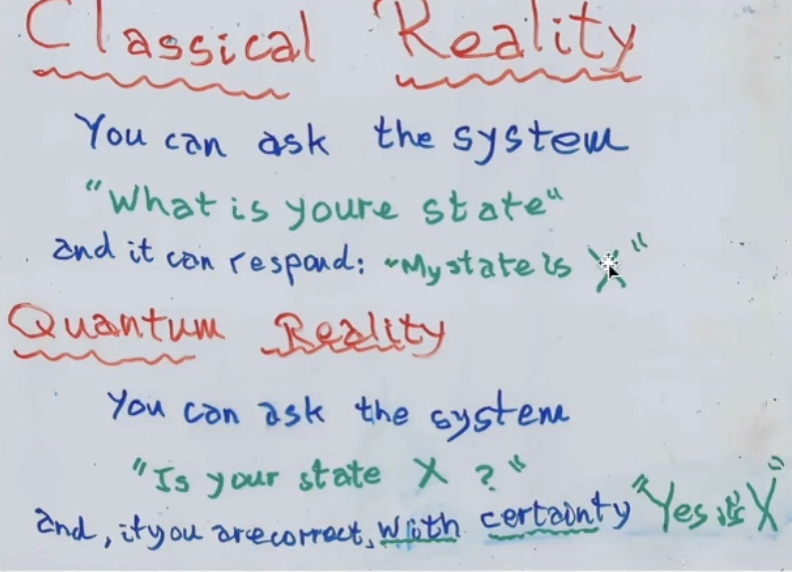 Classical Reality
You can ask the system
"What is youre state"
and it can respond: "My state is X"
Quantum Reality
You can ask the system
"Is your state X ?"
and, if you are correct, with certainty "Yes it's X"